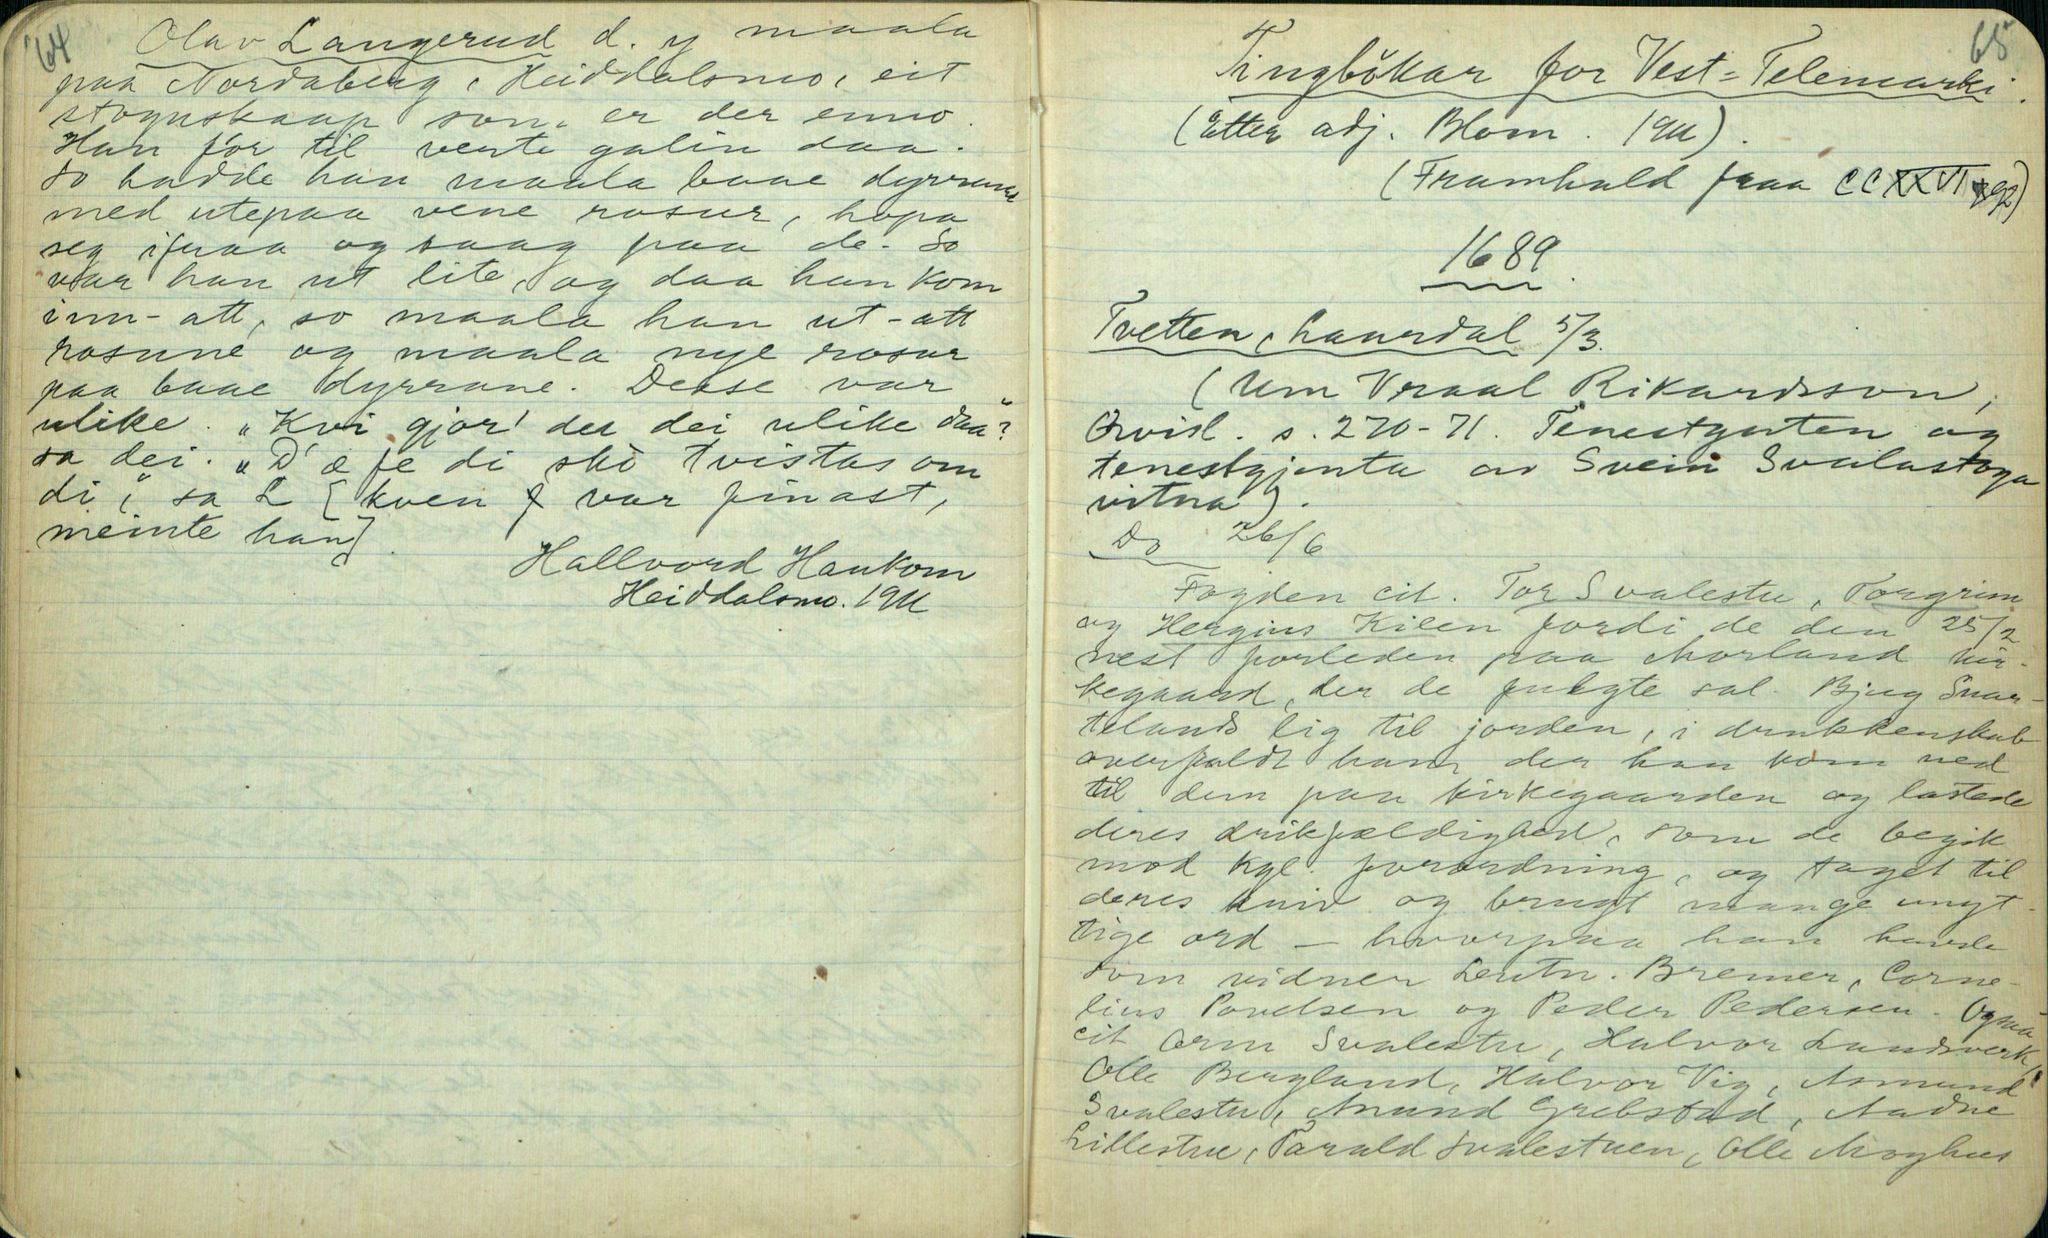 64
Olav Langerud d. y maala
paa Nordaberg, Heiddalsmo, eit
stognskaap som er der enno.
Han fór til verte galin daa.
So hadde han maala baae dyrranne
med utepaa vene rosur, hopa
seg ifraa og saag paa de. So
var han ut lite, og daa han kom
inn-att, so maala han ut-att
rosune og maala nye rosur
paa baae dyrrane. Desse var
ulike. "Kvi gjor' du dei ulike daa"?
sa dei. "D'æ fe di ski tvistas om
di", sa L [kven var finast,
meinte han]
Hallvord Haukom
Heiddalsmo. 1911
65
Tingbókar for Vest-Telemarki.
(Etter adj. Blom. 1911).
(Framhald fraa CCXXVI 92)
1689.
Tveiten, Laurdal 5/3.
(Um Vraal Rikardsson,
Øvisl. s. 270-71. Tenestguten og
tenestgjenta av Svein Svalastoga
vitna).
Do 26/6
Fogden cit. Tor Svalestu, Torgrim
og Hergius Kilen fordi de den 25/2
nest forleden paa Morland kir-
kegaard, der de fulgte sal. Bjug Svar-
telands lig til jorden, i drukkenskab
overfaldt ham, der han kom ned
til dem paa kirkegaarden og lastede
deres drikfældighed, som de begik
mod kgl. forordning, og taget til
deres kniv og brugt mange unyt-
tige ord — hvorpaa han havde
som vidner Leutn. Bremer, Corne-
lius Povelsen og Peder Pedersen. Ogsaa
cit Orm Svalestu, Halvor Landsverk,
Olle Bergland, Halvor Vig, Asmund
Svalestu, Anund Grebstad, Aadne
Lillestue, Tarald Svalestuen, Olle Moghus